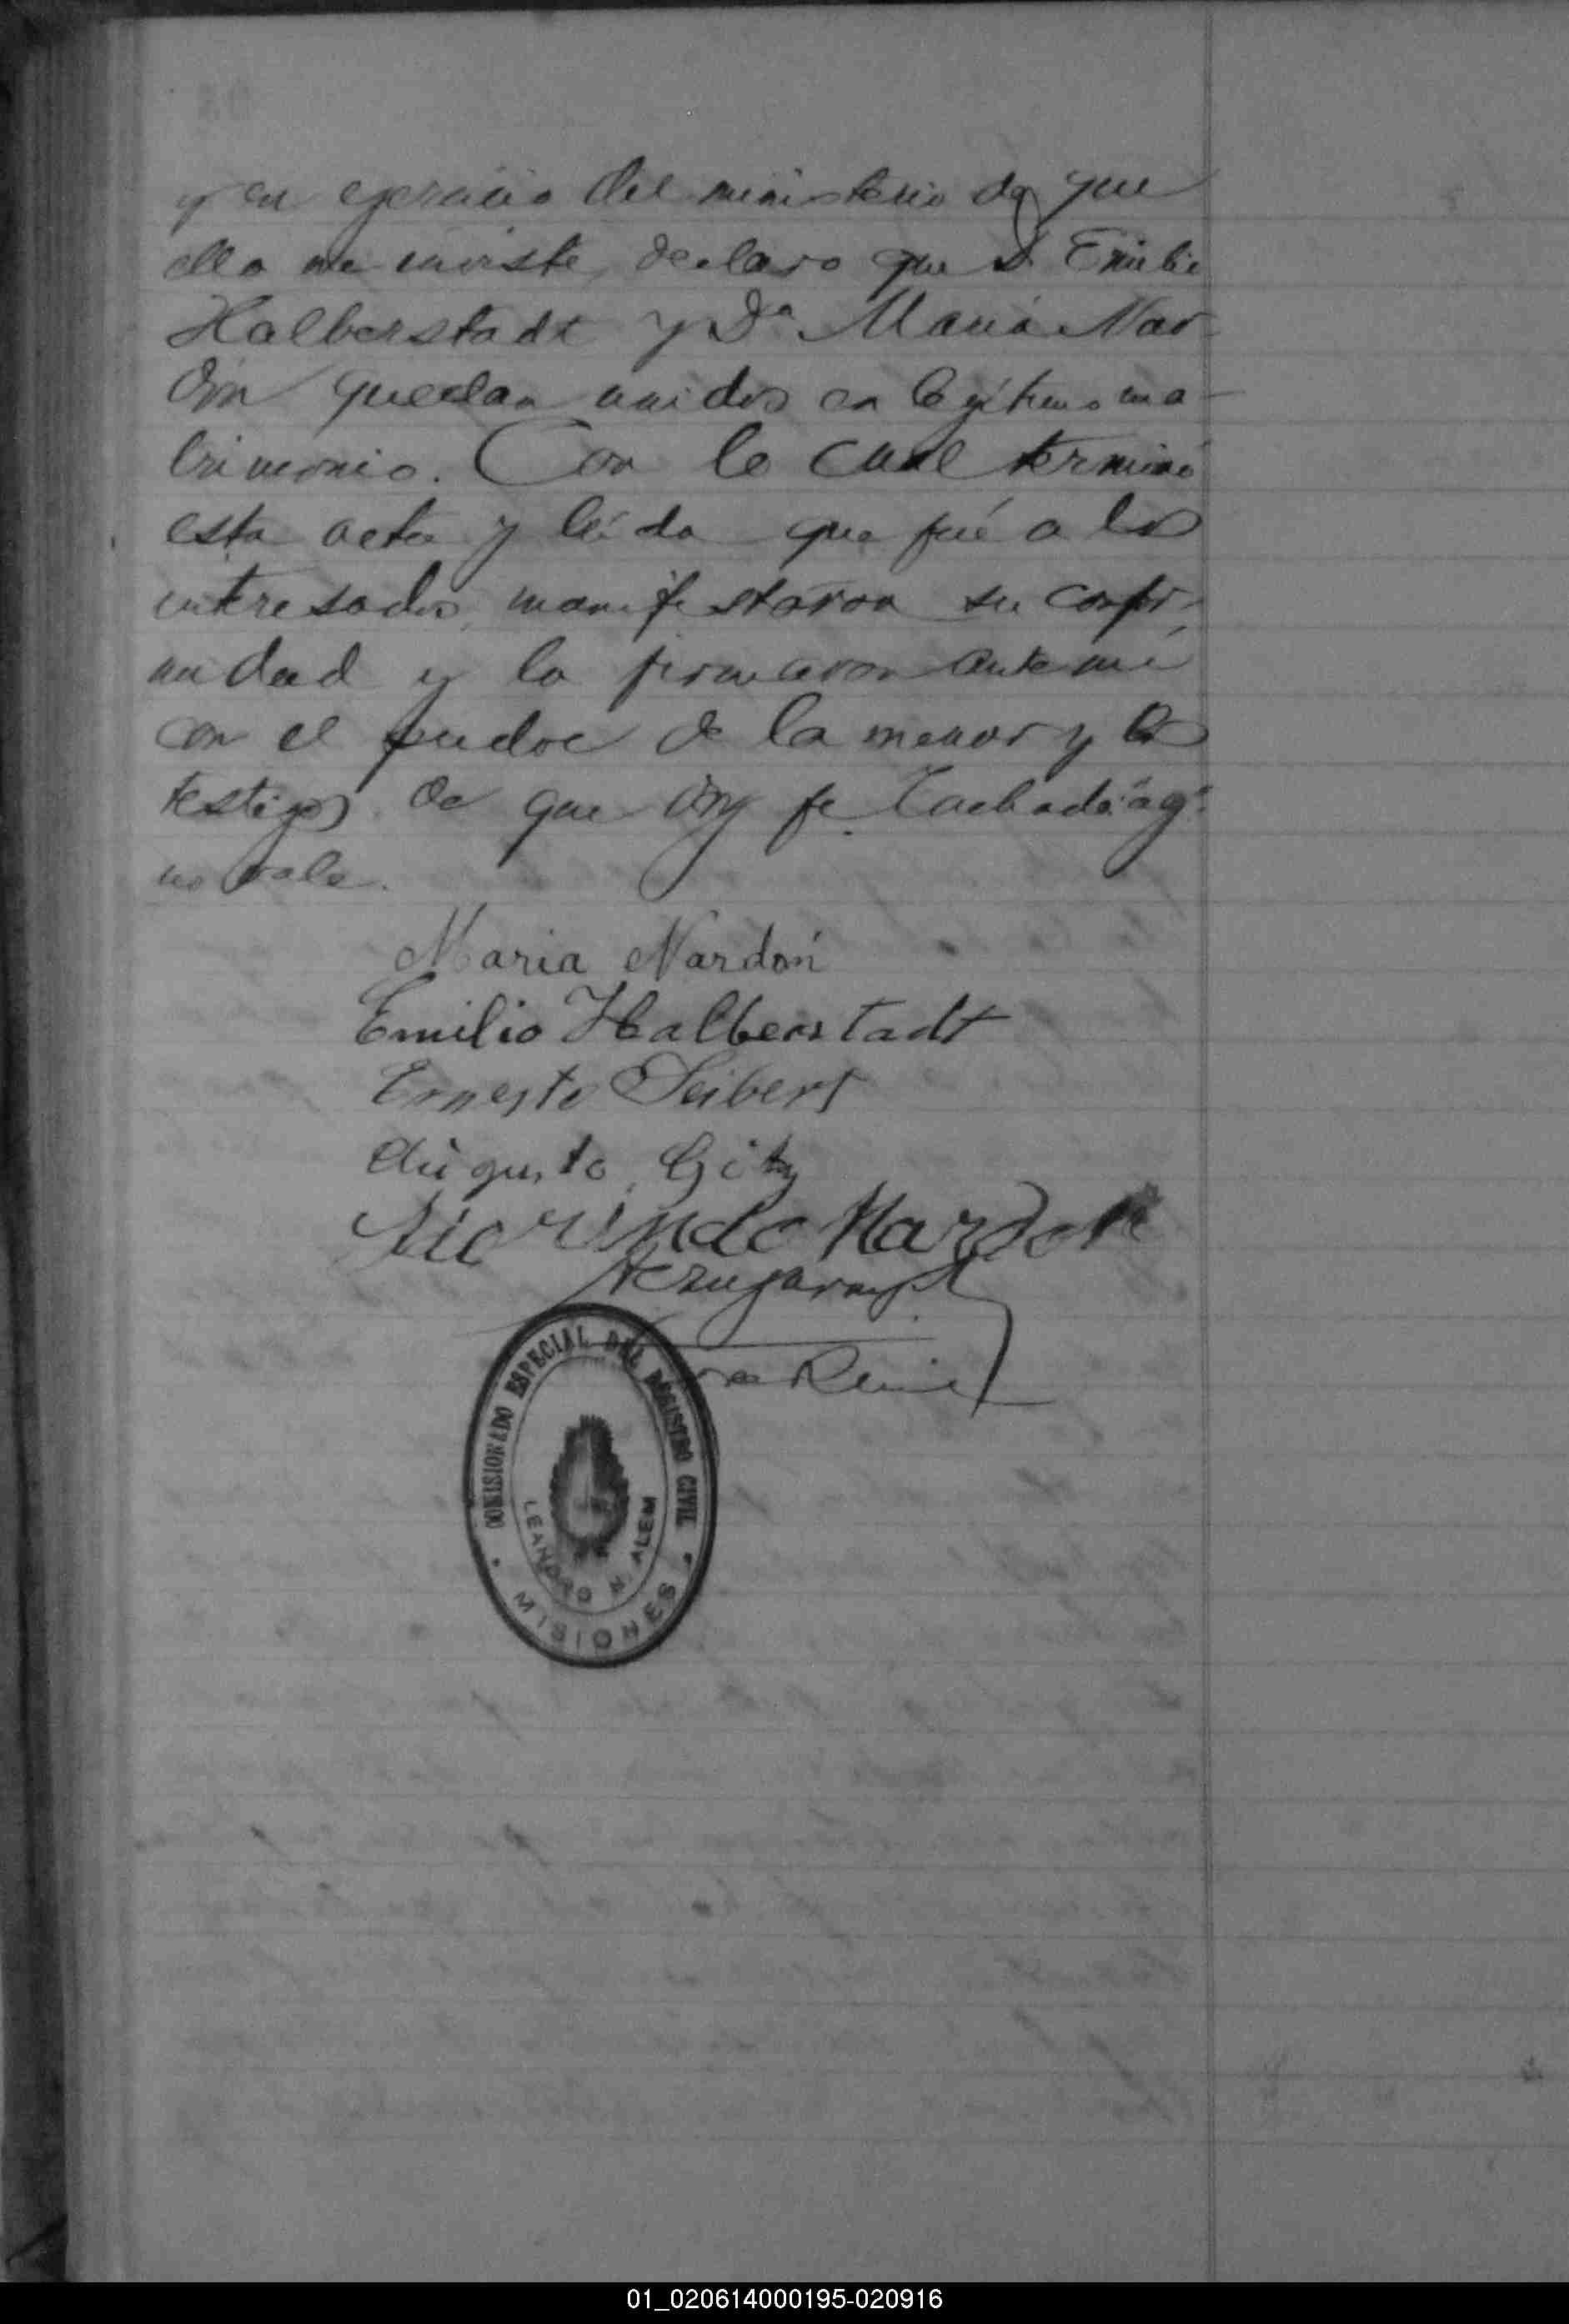 y en ejercicio del ministerio de que
ella me inviste, declaro que D. Emilio
Halberstadt y Da. Maria Nar-
dón quedan unidos en legítimo ma-
trimonio. Con lo cual terminó
esta acta y leída que fué a los
interesados, manifestaron su confor-
midad y la firmaron ante mí
con el padre de la menor y los
testigos de que doy fe. Tachado: "ag".
no vale.
Maria Nardón
Emilio Halberstadt
Ernesto Seibert
Augusto Götz
Nardon
COMISIONADO ESPECIAL DEL REGISTRO CIVIL
LEANDRO N. ALEM
MISIONES
01_020614000195-020916